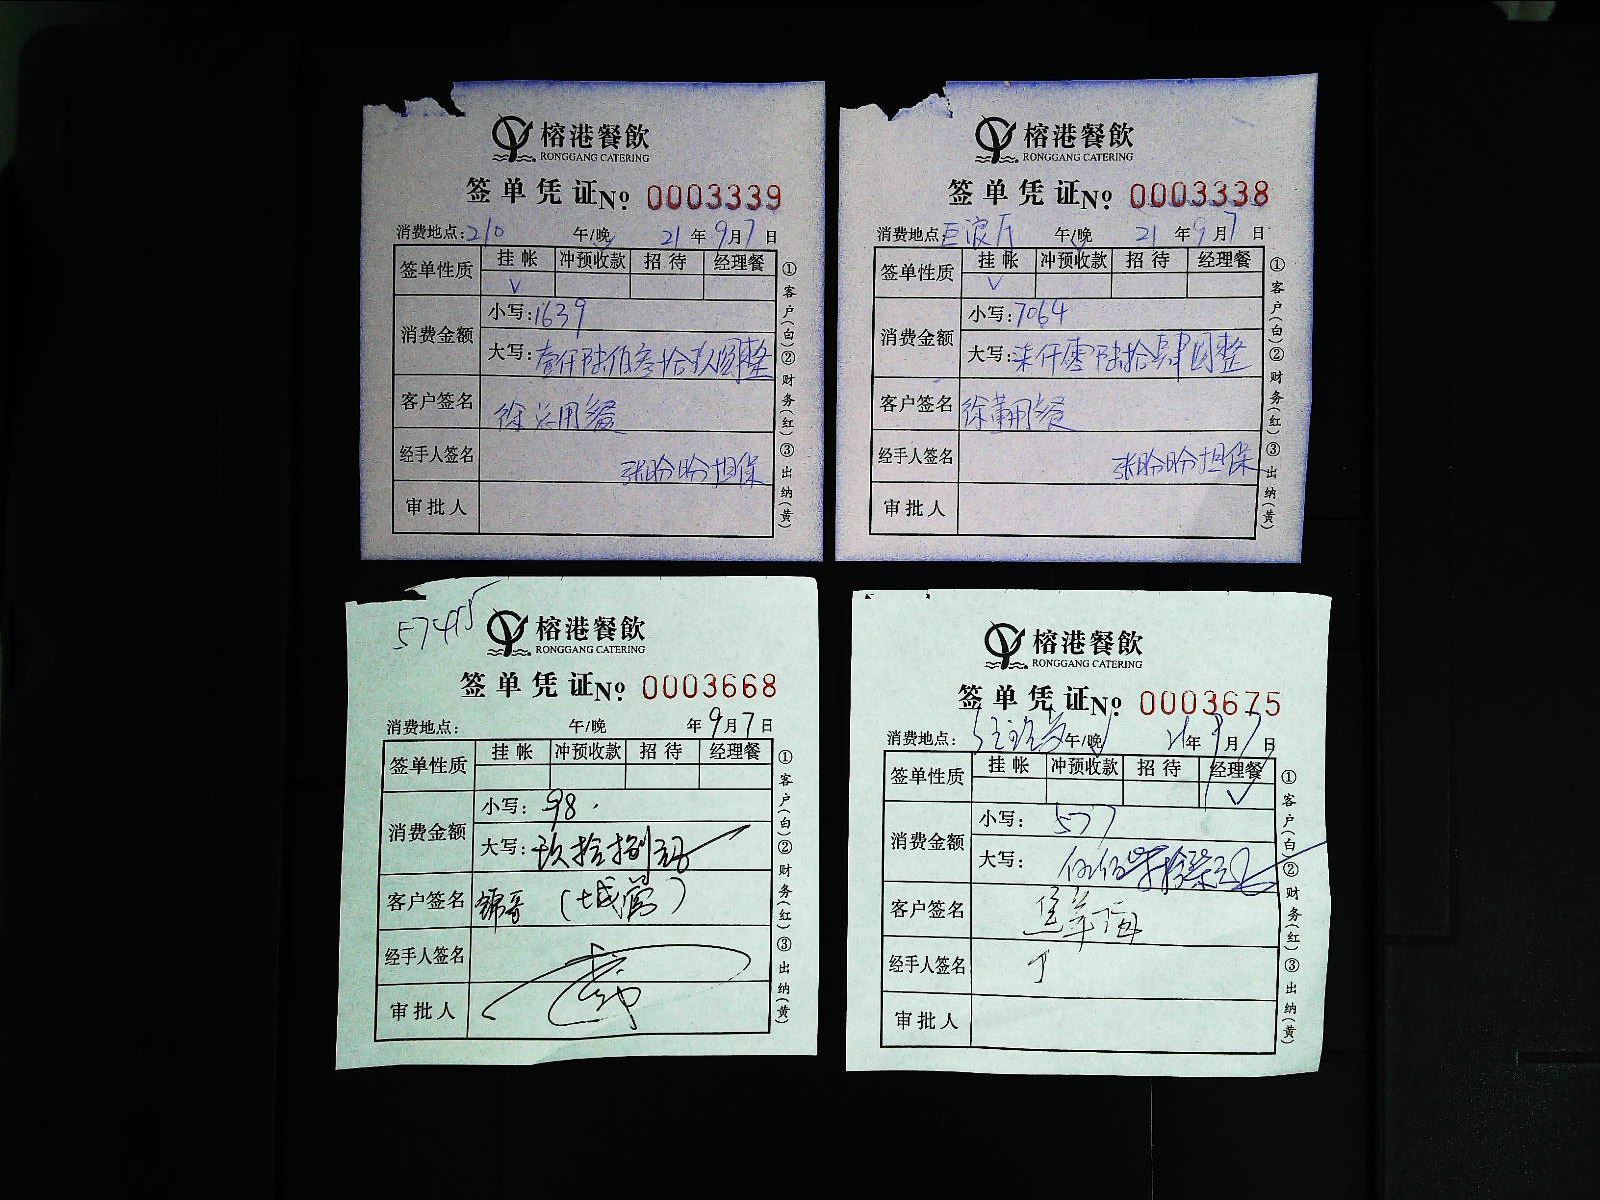 榕港餐飲
RONGGANG CATERING
签单凭证No 0003339
消费地点:210 午/晚 21年9月7日
签单性质 挂帐 冲预收款 招待 经理餐
√
消费金额 小写:1639
大写:壹仟陆佰叁拾玖圆整
客户签名 徐总用餐
经手人签名 张盼盼担保
审批人
①客户(白)②财务(红)③出纳(黄)
榕港餐飲
RONGGANG CATERING
签单凭证No 0003338
消费地点 巨浪厅 午/晚 21年9月7日
签单性质 挂帐 冲预收款 招待 经理餐
√
消费金额 小写:7064
大写:柒仟零陆拾肆圆整
客户签名 徐董用餐
经手人签名 张盼盼担保
审批人
①客户(白)②财务(红)③出纳(黄)
榕港餐飲
RONGGANG CATERING
签单凭证No 0003668
消费地点: 午/晚 年9月7日
签单性质 挂帐 冲预收款 招待 经理餐
消费金额 小写:98.
大写:玖拾捌元
客户签名
经手人签名
审批人
①客户(白)②财务(红)③出纳(黄)
榕港餐飲
RONGGANG CATERING
签单凭证No 0003675
消费地点: 午/晚 21年9月7日
签单性质 挂帐 冲预收款 招待 经理餐
√
消费金额 小写:577
大写:伍佰柒拾柒元
客户签名
经手人签名
审批人
①客户(白)②财务(红)③出纳(黄)